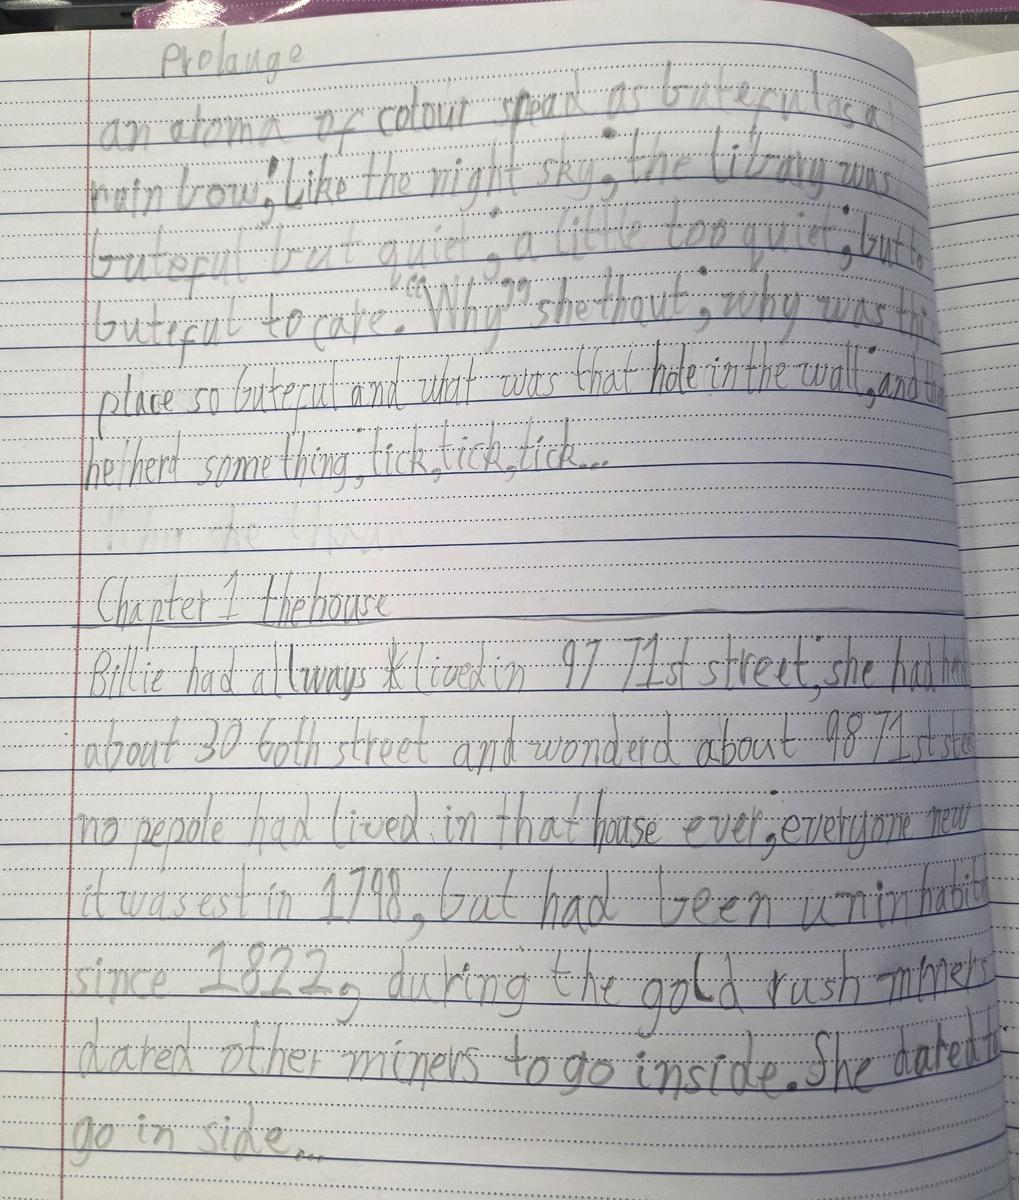 Prolauge
an aroma of colour spead as buteful as a
rain bow; Like the night sky; the librarg was
buteful but quiet; a little too quiet; but to
buteful to care. "Why" she thout; why was this
place so buteful and what was that hole in the wall; and then
he herd something, tick, tick, tick...
Why she thou
Chapter 1 the house
Billie had allways lived in 97 71st street; she had
about 30 60th street and wonderd about 98 71st
no pepole had lived in that house ever; everyone new
it was est in 1798, but had been uninhabit
since 1822, during the gold rush miners
dared other miners to go inside. She dared to
go in side...